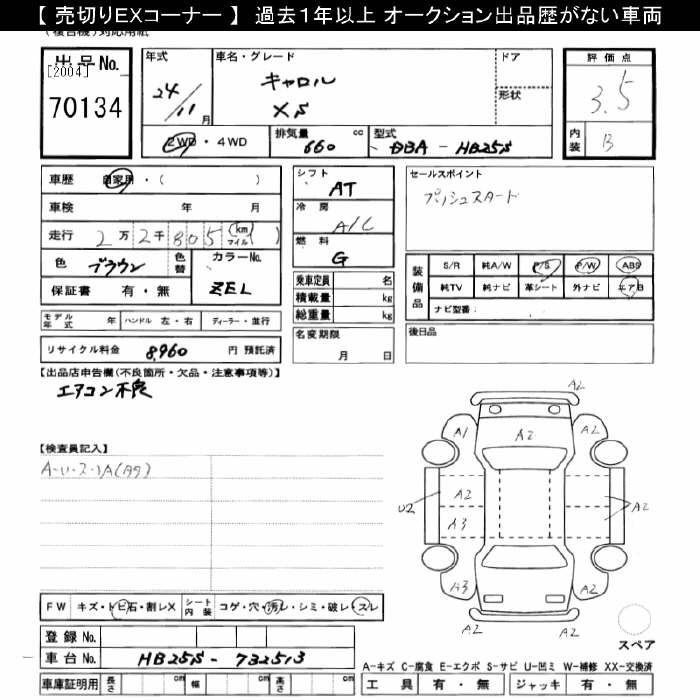 【 売切りEXコーナー 】 過去1年以上 オークション出品歴がない車両
(複合機)対応用紙
出品No.
[2004]
70134
年式
24/11月
車名・グレード
キャロル
XS
ドア
形状
評価点
3.5
内装
B
2WD・4WD
排気量 cc
660
型式
DBA - HB25S
車歴 自家用・( )
車検 年 月
走行 2万2千805(km マイル)
色 ブラウン
色替
カラーNo.
ZEL
保証書 有・無
モデル年式
ハンドル 左・右
ディーラー・並行
リサイクル料金 8,960 円 預託済
シフト
AT
冷房
A/C
燃料
G
乗車定員 名
積載量 kg
総重量 kg
名変期限
月 日
セールスポイント
プッシュスタード
装備品
S/R 純A/W P/S P/W ABS
純TV 純ナビ 革シート 外ナビ エアB
ナビ型番:
後日品
【出品店申告欄(不良箇所・欠品・注意事項等)】
エアコン不良
【検査員記入】
A2
A1
A2
A2
U2
A2
A3
A2
A2
A3
A2
A2
FW キズ・トビ石・割レX
シート内装 コゲ・穴・汚レ・シミ・破レ・スレ
登録No.
車台No. HB25S - 732513
車庫証明用 長さ cm 幅 cm 高さ cm
スペア
A-キズ C-腐食 E-エクボ S-サビ U-凹ミ W-補修 XX-交換済
工具 有・無 ジャッキ 有・無